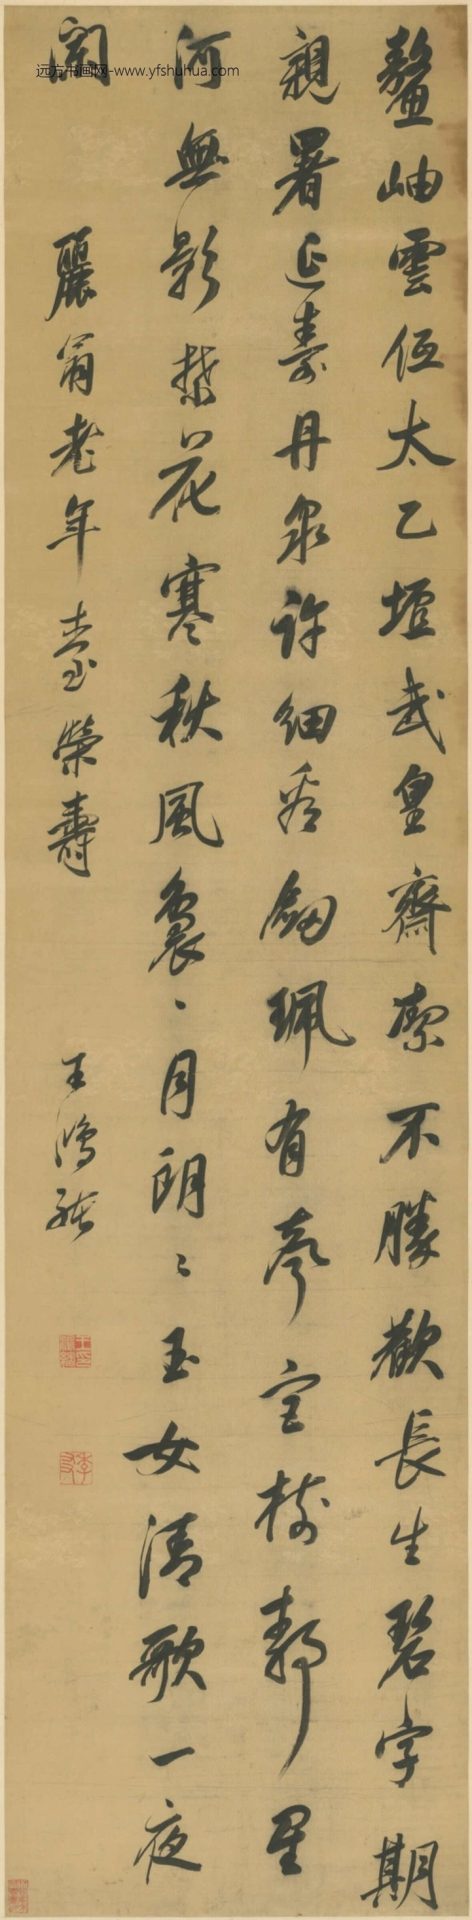 远方书画网-www.yfshuhua.com
鼇岫雲低太乙壇武皇齋絜不勝歡長生碧字期
親署延壽丹泉許細看劍珮有聲宮樹靜星
河無影禁花寒秋風裊〻月朗〻玉女清歌一夜
闌
麗翁老年臺榮壽
王鴻緒